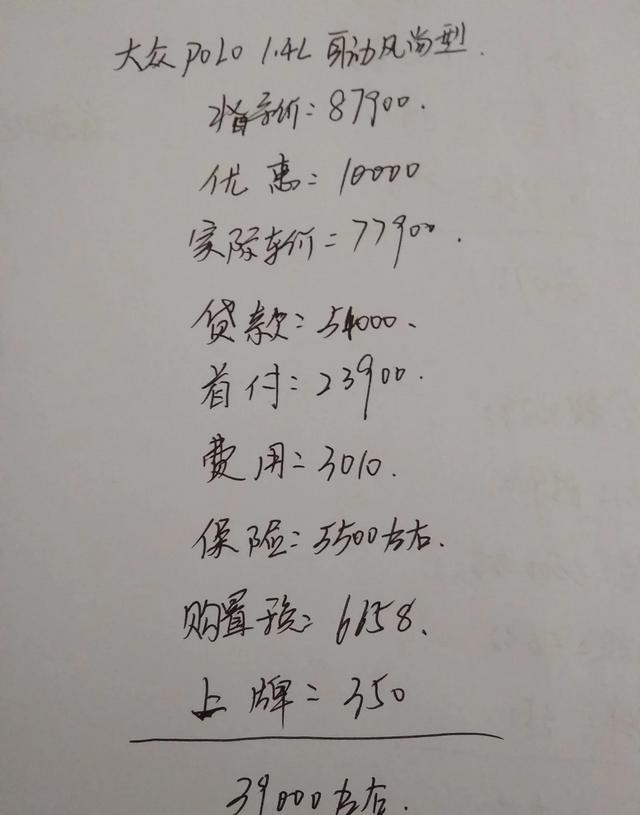 大众POLO 1.4L 自动风尚型.
指导价:87900.
优惠:10000
实际车价=77900.
贷款:54000、
首付:23900.
费用=3010.
保险:5500左右.
购置税:6658、
上牌=350
39000左右.